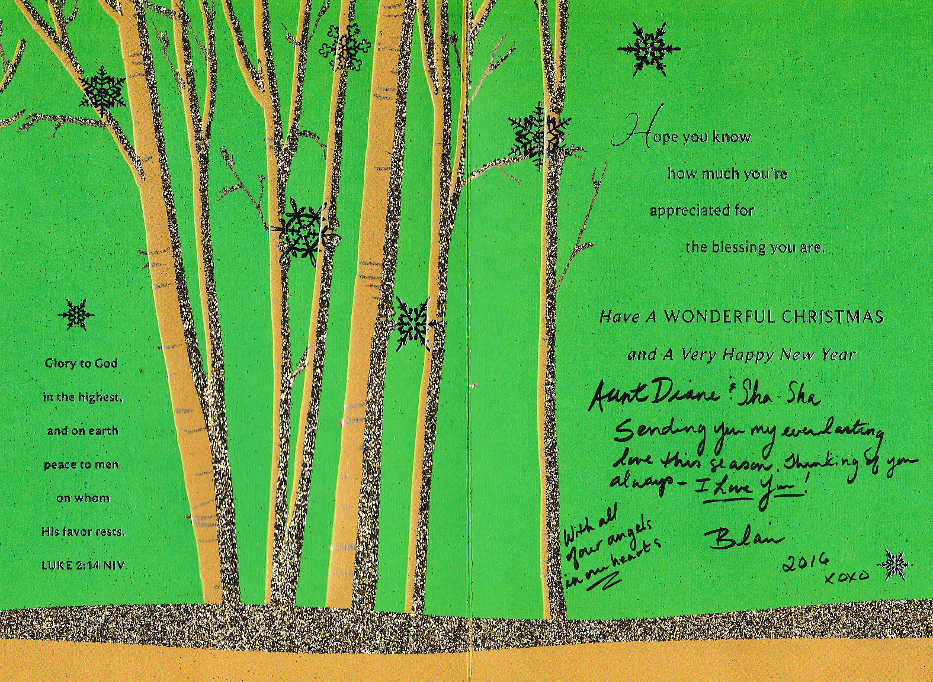 Glory to God
in the highest,
and on earth
peace to men
on whom
His favor rests.
LUKE 2:14 NIV
Hope you know
how much you're
appreciated for
the blessing you are.
Have A WONDERFUL CHRISTMAS
and A Very Happy New Year
Aunt Diane & Sha-Sha
Sending you my everlasting
love this season. Thinking of you
always - I Love You!
With all
of our angels
in our hearts
Blair
2016
xoxo